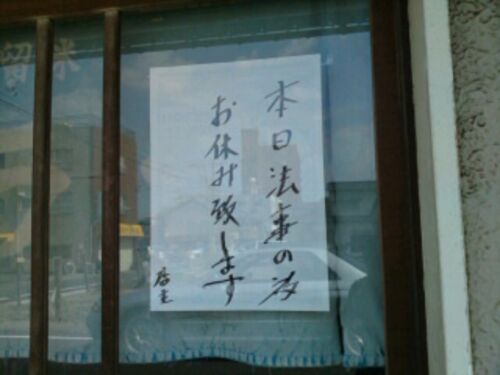 本日法事の為
お休み致します
店主
留米